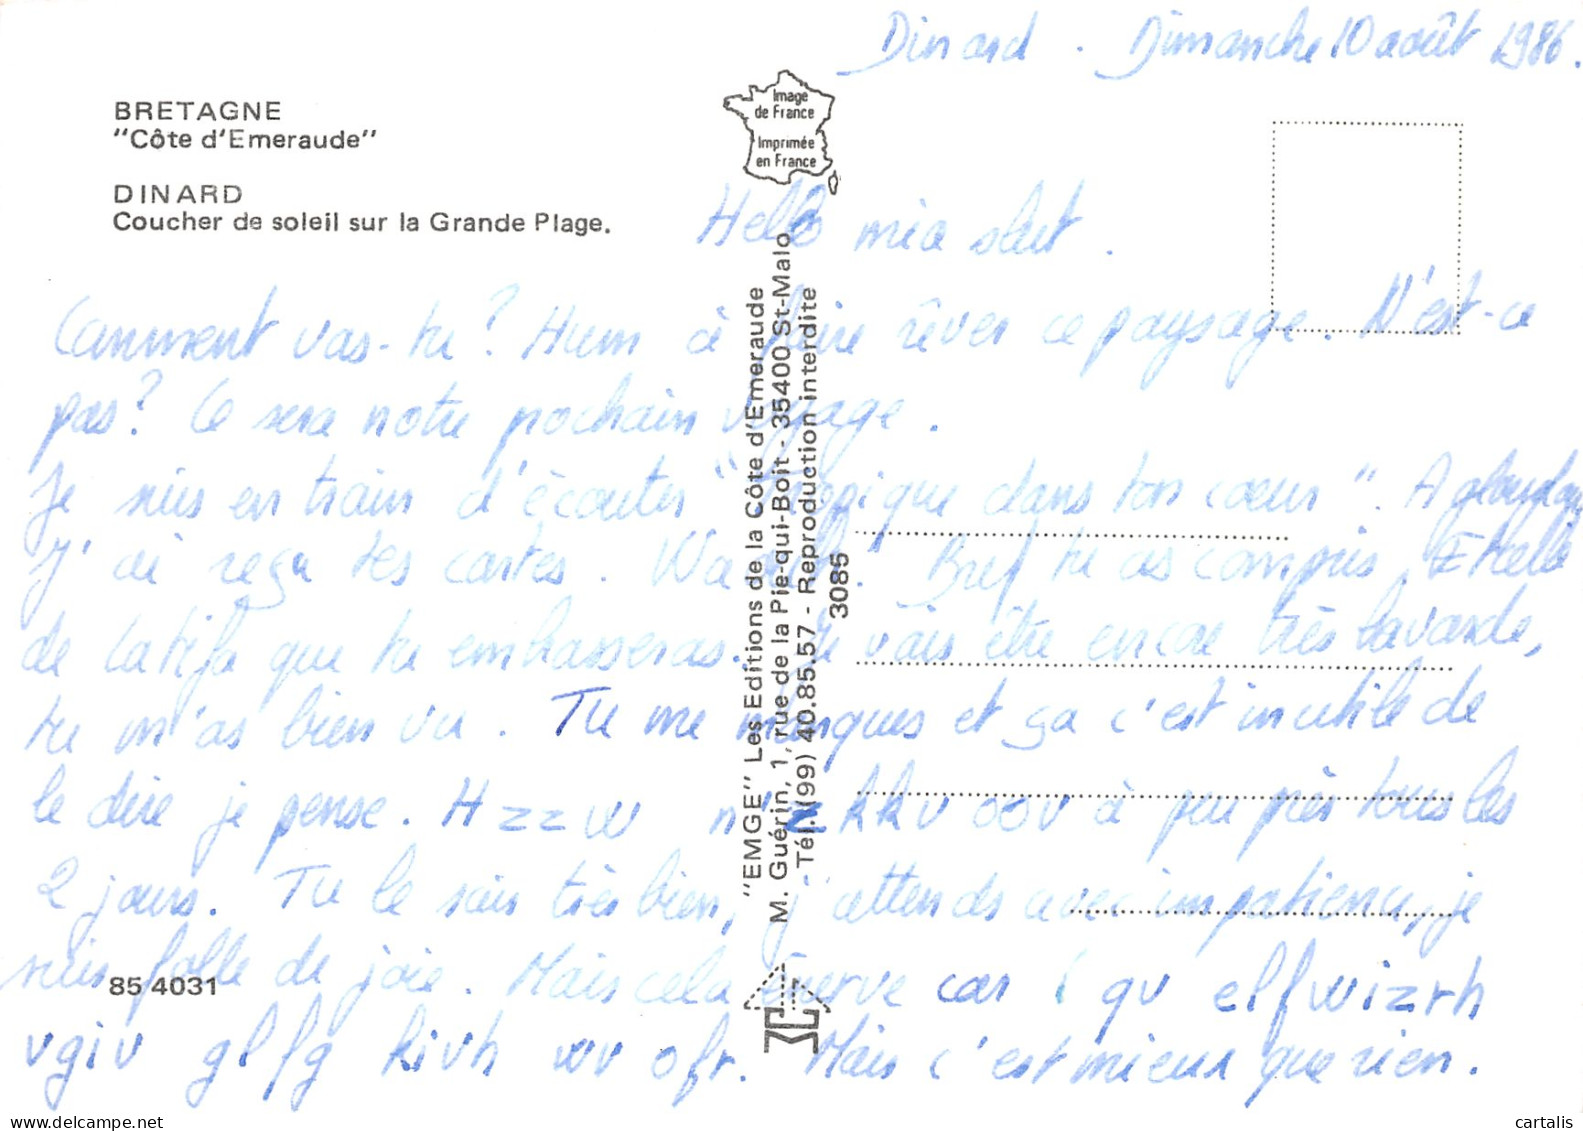 Dinard . Dimanche 10 août 1986.
BRETAGNE
"Côte d'Emeraude"
DINARD
Coucher de soleil sur la Grande Plage.
Image
de France
Imprimée
en France
Hello mia
Comment vas-tu ? Hum à faire rêver ce paysage. N'est-ce
pas ? Ce sera notre prochain voyage.
Je suis en train d'écouter "Tropique dans ton coeur". A
J'ai reçu tes cartes. Bref tu as compris,
de Latifa que tu embrasseras. Je vais être encore très bavarde,
tu m'as bien vu. Tu me manques et ça c'est inutile de
le dire je pense. H z z w n' z k k v o o v à peu près tous les
2 jours. Tu le sais très bien, j'attends avec impatience, je
suis folle de joie. Mais cela énerve car qv elfwizrh
vgiv glfg kivh wv ofr. Mais c'est mieux que rien.
"EMGE" Les Editions de la Côte d'Emeraude
M. Guérin, 1, rue de la Pie-qui-Boit - 35400 St-Malo
Tél. (99) 40.85.57 - Reproduction interdite
3085
85 4031
www.delcampe.net
cartalis